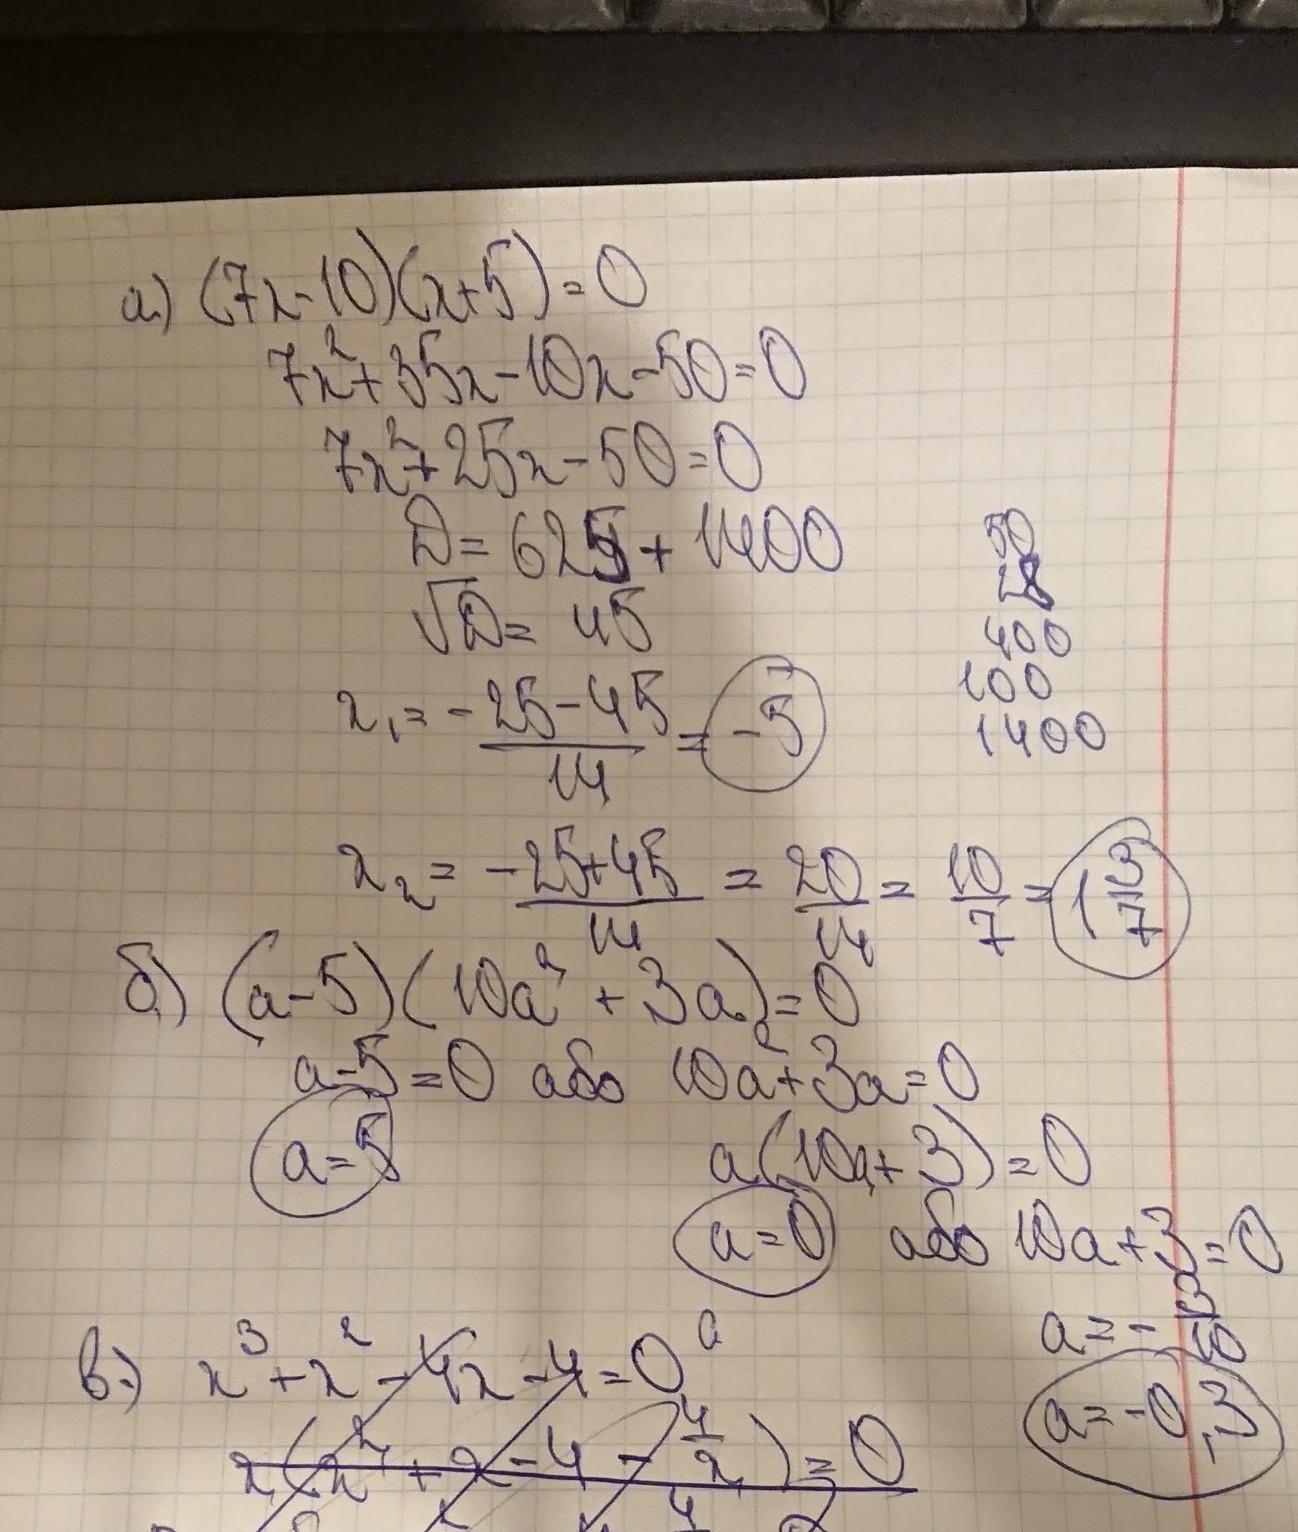 а) (7x-10)(x+5)=0
7x²+35x-10x-50=0
7x²+25x-50=0
D=625+1400
√D= 45
x₁= (-25-45)/14 = -5
x₂= (-25+45)/14 = 20/14 = 10/7 = 1 3/7
50
28
400
100
1400
б) (a-5)(10a²+3a)=0
a-5=0 або 10a²+3a=0
a=5 a(10a+3)=0
a=0 або 10a+3=0
a=-3/10
a=-0,3
в) x³+x²-4x-4=0
x(x²+x-4-4/x)=0